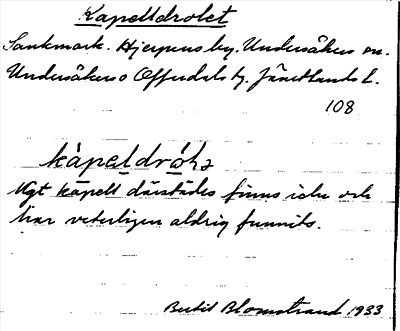 Kapelldrolet
Sankmark. Hjerpens by. Undersåkers sn.
Undersåkers o Offerdals tg. Jämtlands l.
108
kàpeldróhə
Ngt kapell därstädes finns icke och
har veterligen aldrig funnits.
Bertil Blomstrand 1933